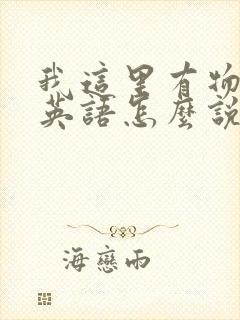 我這里有物
英語怎麼說
海戀雨